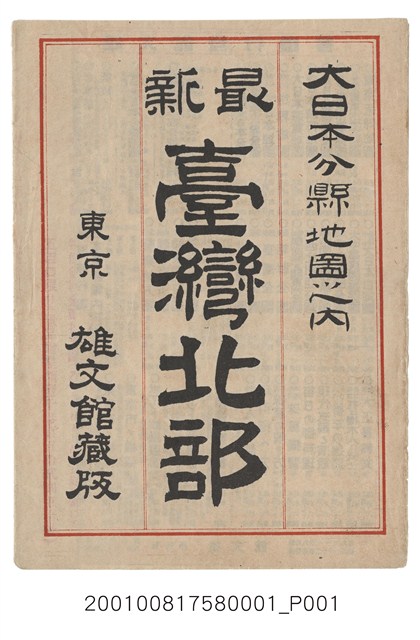 大日本分縣地圖之内
最新
臺灣北部
東京
雄文館藏版
200100817580001_P001